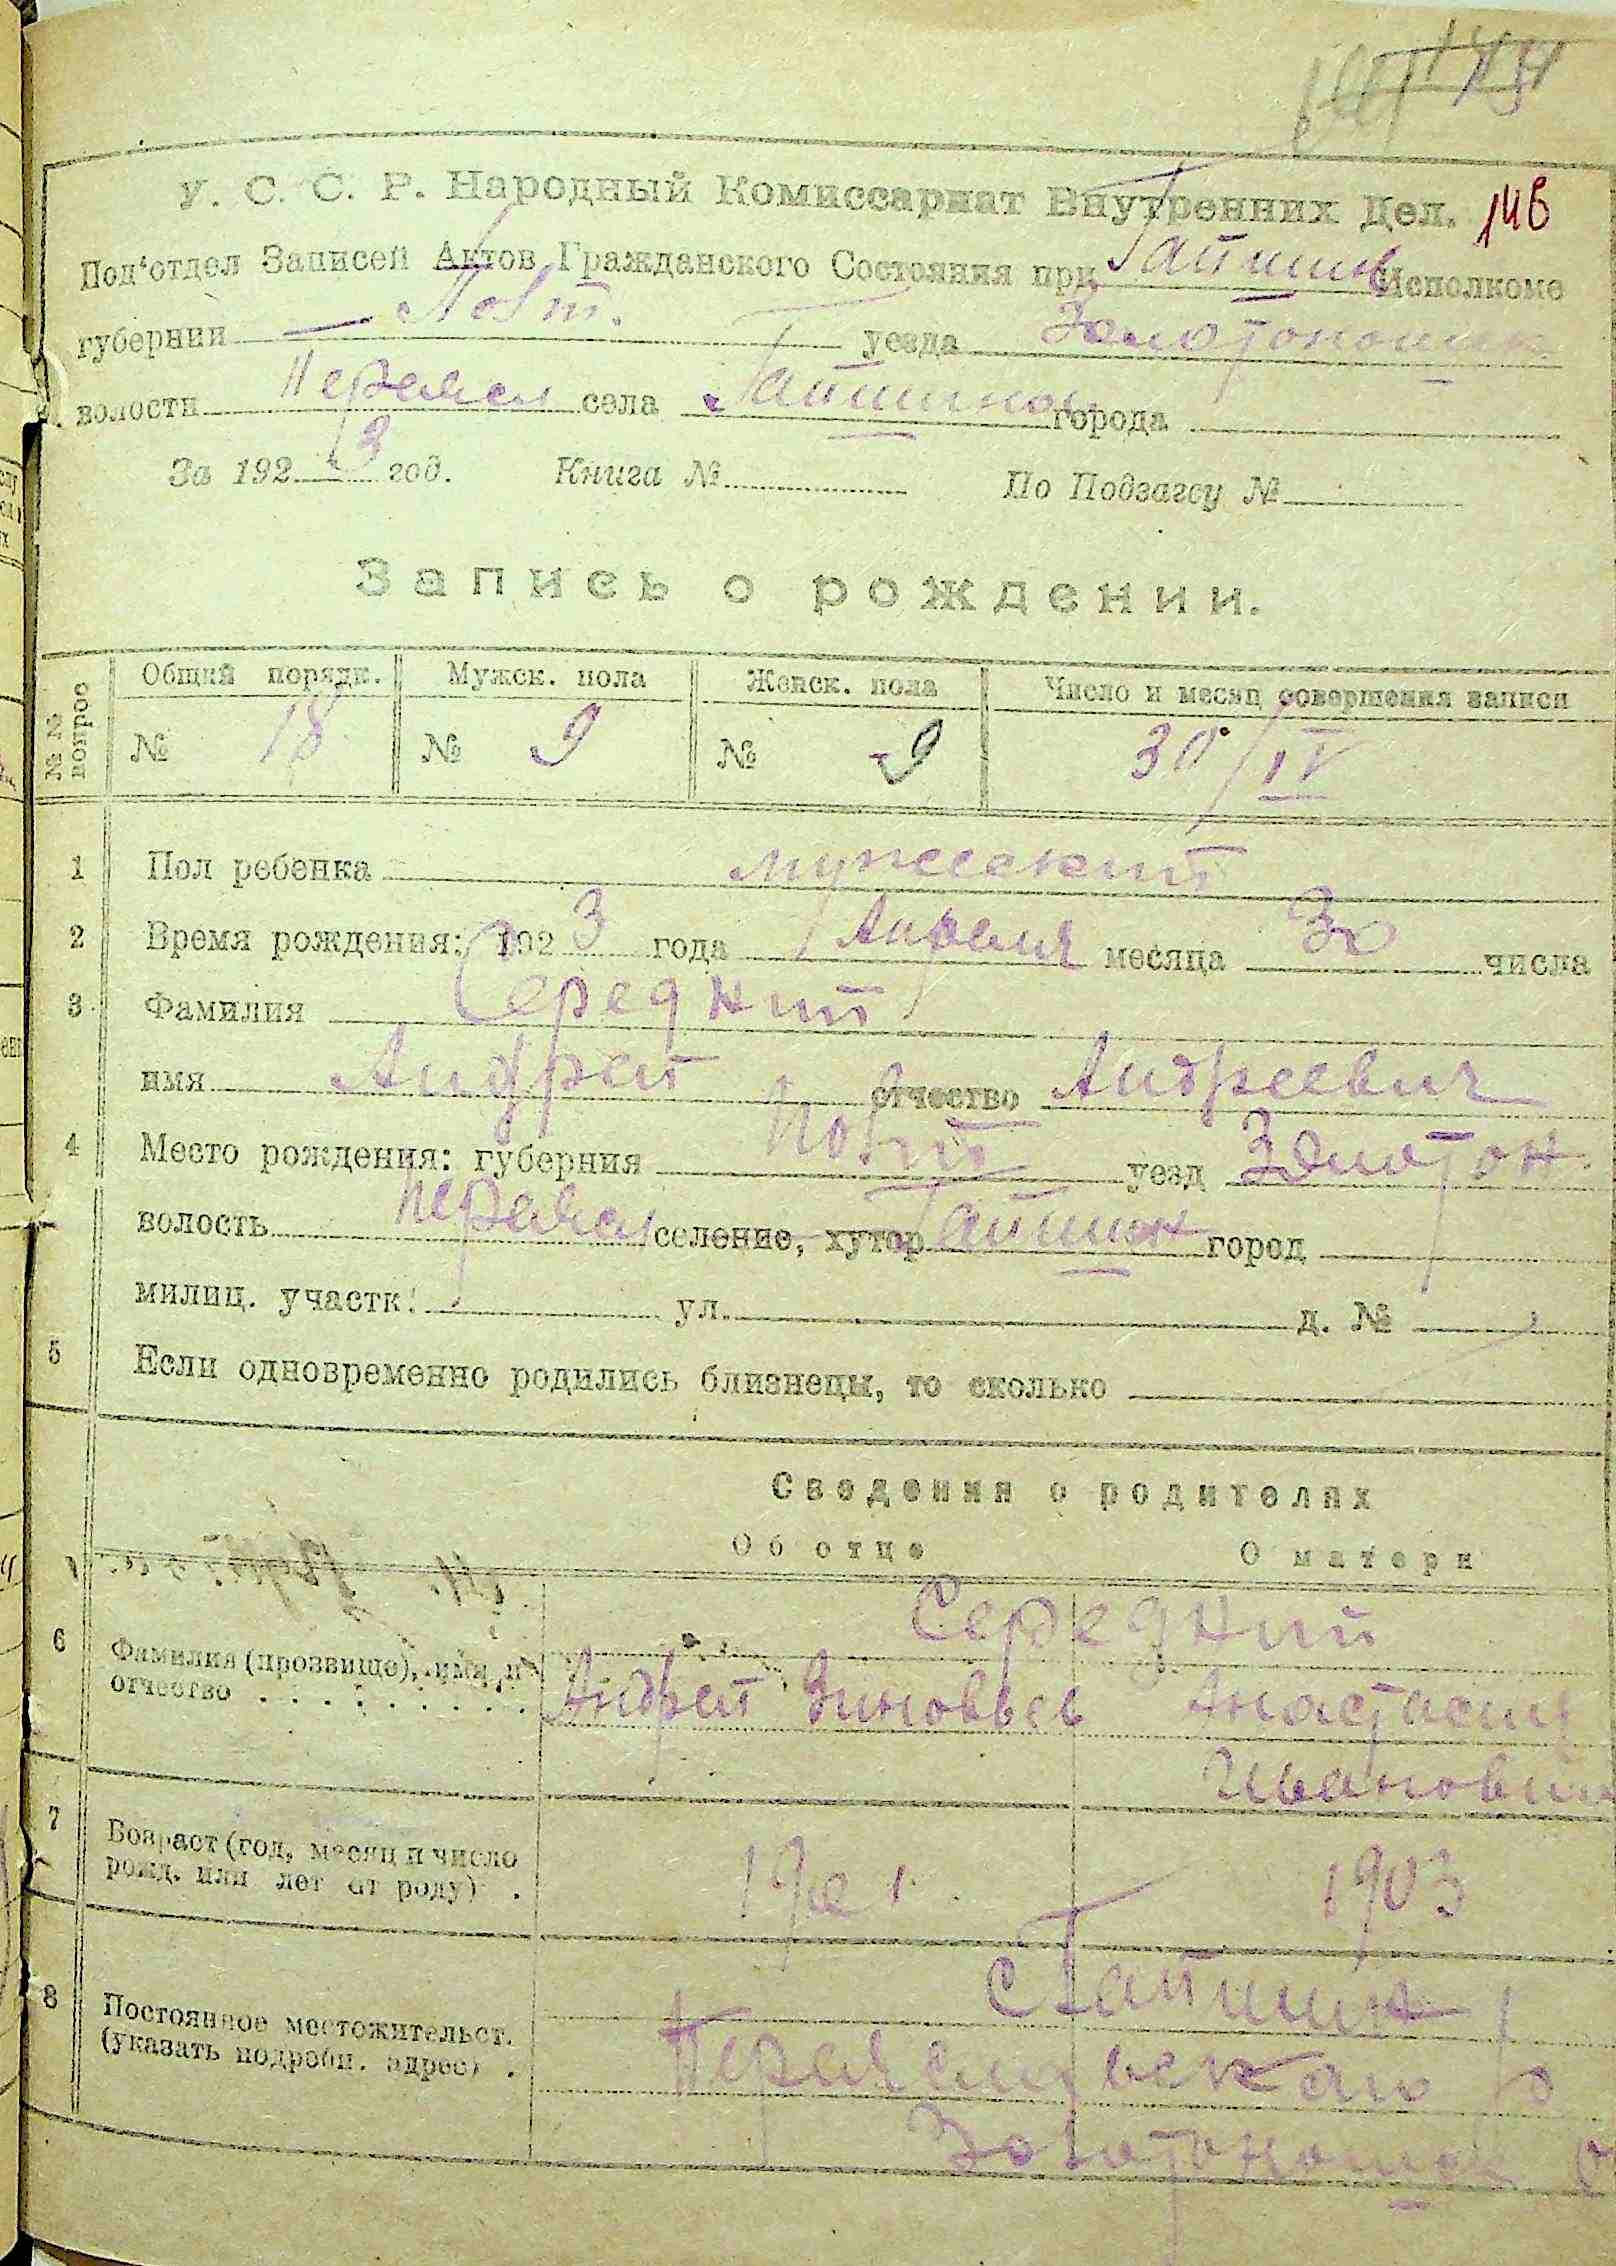 146
У. С. С. Р. Народный Комиссариат Внутренних Дел.
Под'отдел Записей Актов Гражданского Состояния при Гайшин Исполкоме
губернии Полт. уезда Золотоношск
волости Переясл села Гайшинои города
За 1923 год. Книга № По Подзагсу №
Запись о рождении.
№№ вопрос Общий порядк. Мужск. пола Женск. пола Число и месяц совершения записи
№ 18 № 9 № 9 30/IV
1 Пол ребенка мужеский
2 Время рождения: 1923 года Апреля месяца 30 числа
3 Фамилия Середний
имя Андрей отчество Андреевич
4 Место рождения: губерния Полт уезд Золотон.
волость Переясл селение, хутор Гайшин город
милиц. участк. ул. д. №
5 Если одновременно родились близнецы, то сколько
Сведения о родителях
Об отце О матери
Середний
6 Фамилия (прозвище), имя и отчество Андрей Зиновьев Анастасия
Иванови
7 Возраст (год, месяц и число рожд. или лет от роду) 1901 1903
с Гайшин
8 Постоянное местожительст. (указать подробн. адрес) Переяславскаго р
Золотоношск